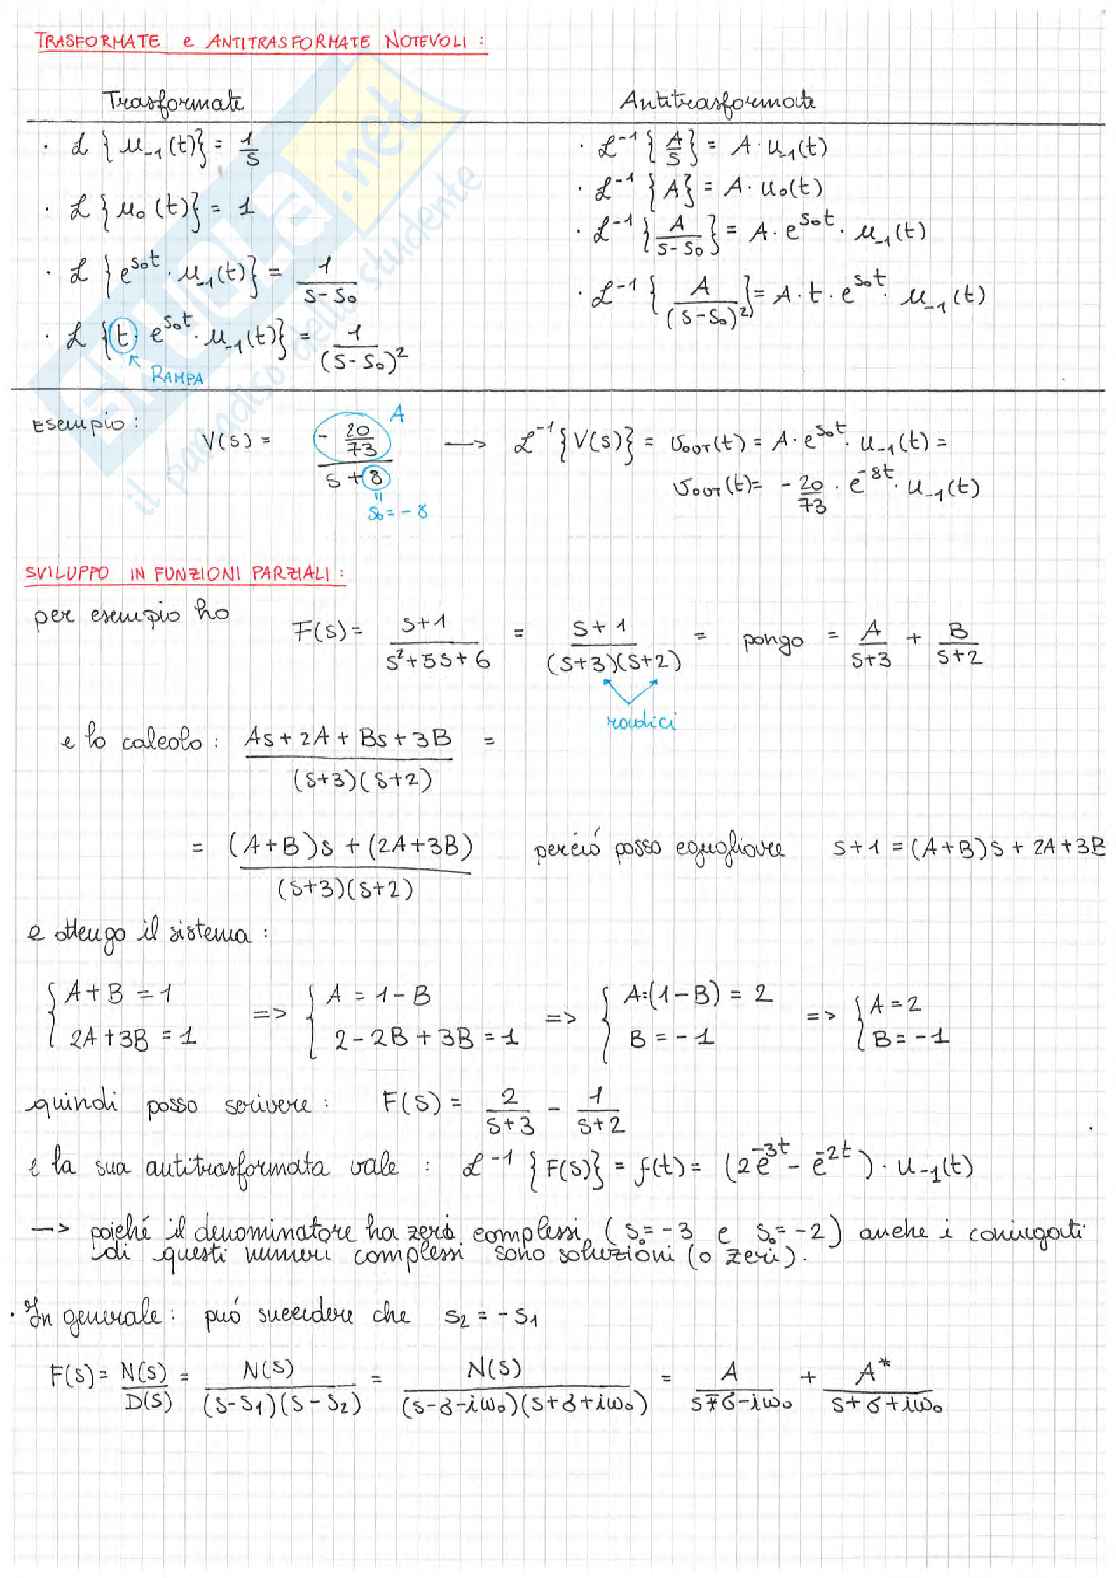 TRASFORMATE e ANTITRASFORMATE NOTEVOLI :
Trasformate
· ℒ {u₋₁(t)} = 1/s
· ℒ {u₀(t)} = 1
· ℒ {e^{s₀t} · u₋₁(t)} = 1/(s-s₀)
· ℒ {t · e^{s₀t} · u₋₁(t)} = 1/(s-s₀)²
RAMPA
Antitrasformate
· ℒ⁻¹ {A/s} = A · u₋₁(t)
· ℒ⁻¹ {A} = A · u₀(t)
· ℒ⁻¹ {A/(s-s₀)} = A · e^{s₀t} · u₋₁(t)
· ℒ⁻¹ {A/(s-s₀)²} = A · t · e^{s₀t} · u₋₁(t)
esempio : V(s) = (-20/73)/(s+8) → ℒ⁻¹{V(s)} = v_OUT(t) = A · e^{s₀t} · u₋₁(t) =
A
s₀ = -8
v_OUT(t) = -20/73 · e^{-8t} · u₋₁(t)
SVILUPPO IN FUNZIONI PARZIALI :
per esempio ho F(s) = (s+1)/(s²+5s+6) = (s+1)/((s+3)(s+2)) = pongo = A/(s+3) + B/(s+2)
radici
e lo calcolo : (As+2A+Bs+3B)/((s+3)(s+2)) =
= ((A+B)s+(2A+3B))/((s+3)(s+2)) perciò posso eguagliare s+1 = (A+B)s + 2A+3B
e ottengo il sistema :
{A+B = 1 => {A = 1-B => {A=(1-B) = 2 => {A=2
{2A+3B = 1 {2-2B+3B=1 {B = -1 {B=-1
quindi posso scrivere : F(s) = 2/(s+3) - 1/(s+2)
e la sua antitrasformata vale : ℒ⁻¹ {F(s)} = f(t) = (2e^{-3t} - e^{-2t}) · u₋₁(t)
→ poiché il denominatore ha zeri complessi (s₀=-3 e s₀=-2) anche i coniugati
di questi numeri complessi sono soluzioni (o zeri).
· In generale : può succedere che s₂ = -s₁
F(s) = N(s)/D(s) = N(s)/((s-s₁)(s-s₂)) = N(s)/((s-σ-iω₀)(s+σ+iω₀)) = A/(s-σ-iω₀) + A*/(s+σ+iω₀)
.net
il paradiso dello studente